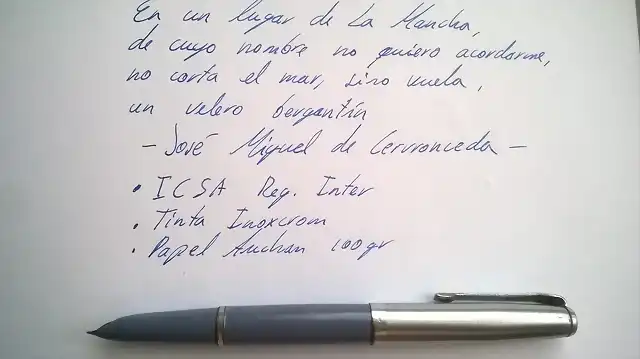 En un lugar de La Mancha,
de cuyo nombre no quiero acordarme,
no corta el mar, sino vuela,
un velero bergantín
- José Miguel de Cervronceda -
• ICSA Reg. Inter
• Tinta Inoxcrom
• Papel Auchan 100gr